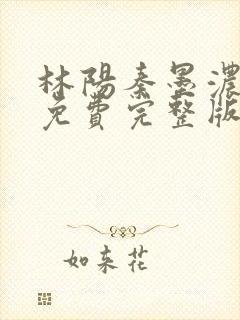 林陽秦墨濃
免費完整版
如来花